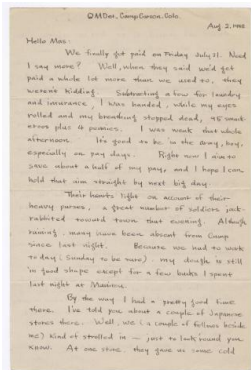 QMDet., Camp Carson, Colo.
Aug 2, 1942
Hello Mac:
We finally got paid on Friday July 31. Need
I say more? Well, when they said we'd get
paid a whole lot more than we used to, they
weren't kidding. Subtracting a few for laundry
and insurance, I was handed, while my eyes
rolled and my breathing stopped dead, 45 smack-
eroos plus 4 pennies. I was weak that whole
afternoon. It's good to be in the army, boy,
especially on pay days. Right now I aim to
save about a half of my pay, and I hope I can
hold that aim straight by next big day.
Their hearts light on account of their
heavy purses, a great number of soldiers jack-
rabbited toward town that evening. Altho
raining, many have been absent from Camp
since last night. Because we had to work
today (Sunday to be sure), my dough is still
in good shape except for a few bucks I spent
last night at Manitou.
By the way I had a pretty good time
there. I've told you about a couple of Japanese
stores there. Well, we (a couple of fellows beside
me) kind of strolled in — just to look 'round you
know. At one store they gave us some cold